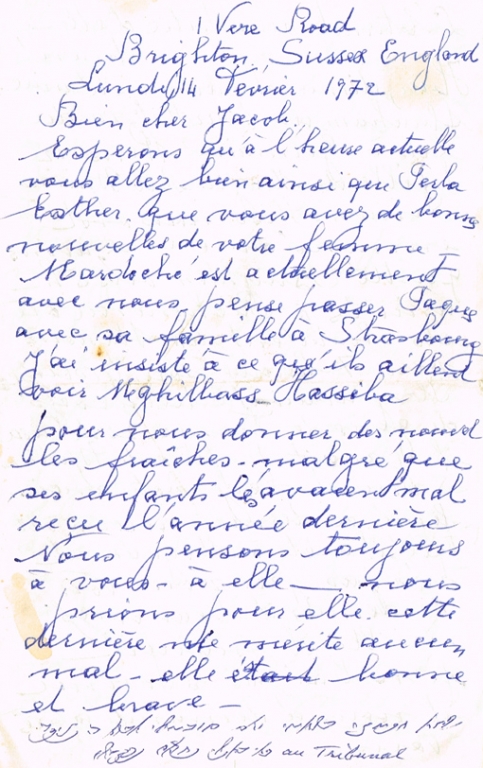 1 Vere Road
Brighton, Sussex England
Lundi 14 Février 1972
Bien cher Jacob,
Esperons qu'à l'heure actuelle
vous allez bien ainsi que Perla
Esther. que vous avez de bonnes
nouvelles de votre femme -
Mardoché est actuellement
avec nous, pense passer Paques
avec sa famille à Strasbourg
J'ai insisté à ce qu'ils aillent
voir Meghilbass Hassiba
pour nous donner des nouvel
les fraîches - malgré que
ses enfants les avaient mal
reçu l'année dernière
Nous pensons toujours
à vous - à elle — nous
prions pour elle. cette
dernière ne mérite aucun
mal - elle était bonne
et brave -
au Tribunal